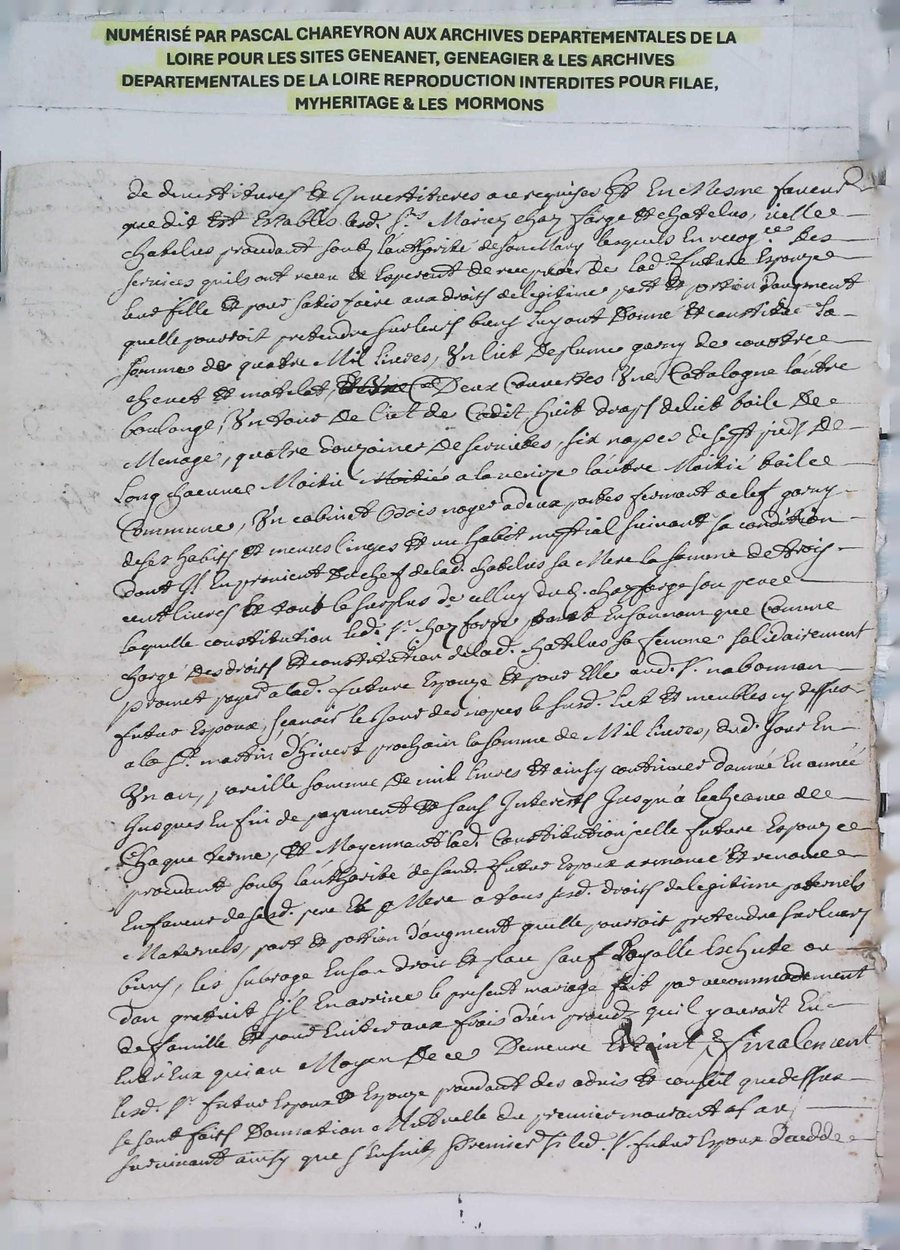 NUMÉRISÉ PAR PASCAL CHAREYRON AUX ARCHIVES DEPARTEMENTALES DE LA
LOIRE POUR LES SITES GENEANET, GENEAGIER & LES ARCHIVES
DEPARTEMENTALES DE LA LOIRE REPRODUCTION INTERDITES POUR FILAE,
MYHERITAGE & LES MORMONS
de devestitures et Investitures a ce requises Et En Mesme faveur
que dit est Establis lesd. Srs Mariez chazforge et chatelus, icelle
chatelus procedant soubz lauthorité de son Mary lesquels En recog.ce Des
services quils ont receu et Esperent de recepvoir de lad. future Espouze
leur fille et pour satisfaire aux droits de legitime part et portion daugment
quelle pourroit pretendre sur leurs biens Luy ont Donné et constitué La
somme de quatre Mil livres, Un lict De plume garny de coultre
chevet et matelat, Deux Couvertes Une Catalogne lautre
boulange, Un tour De lict de Cadit huit draps de lict toile De
Menage, quatre douzaines De serviettes, six napes de sept pieds De
Long chacune Moitié Moitié a la venize lautre Moitié toile
Commune, Un cabinet bois noyer a deux portes fermant a clef garny
de ses habits et menus linges et un habit nuptial suivant sa condition
dont Il En provient du chef de lad. chatelus sa Mere la somme de trois
cent livres et tout le surplus de celluy dud. chazforge son pere
laquelle constitution led. Sr. chazforge tant En son nom que Comme
chargé Des droits et constitution de lad. chatelus sa femme solidairement
promet payer a lad. future Espouze et pour Elle aud. Sr. nabonnan
futur Espoux, sçavoir le Jour des nopces le susd. Lict et meubles cy dessus
a la St. martin d'hivert prochain la somme de Mil livres, dud. Jour En
Un an, pareille somme De mil livres et ainsy continuer dannée En année
Jusques En fin de payement et sans Interests Jusqu'a lecheance de
Chaque terme, et Moyennant lad. Constitution jcelle future Espouze
procedant soubz lauthorité de sond. futur Espoux a renoncé et renonce
En faveur de sesd. pere Et Mere a tous sesd. droits de legitime paternels
Maternels, part et portion d'augment quelle pourroit pretendre sur leurs
biens, les subroge En son droit et place sauf Loyalle Escheute ou
don gratuit s'il En arrive le present mariage fait par accommodement
de famille et pour Eviter aux frais d'un procez qu'il y auroit En
Entr'Eux qui au Moyen De ce Demeure Esteint, & finalement
lesd. Sr. futur Espoux & Espouze procedant des advis et conseil que dessus
se sont faits Donnation Mutuelle du premier mourant a
survivant ainsy que s'Ensuit, Premier Si led. Sr. futur Espoux